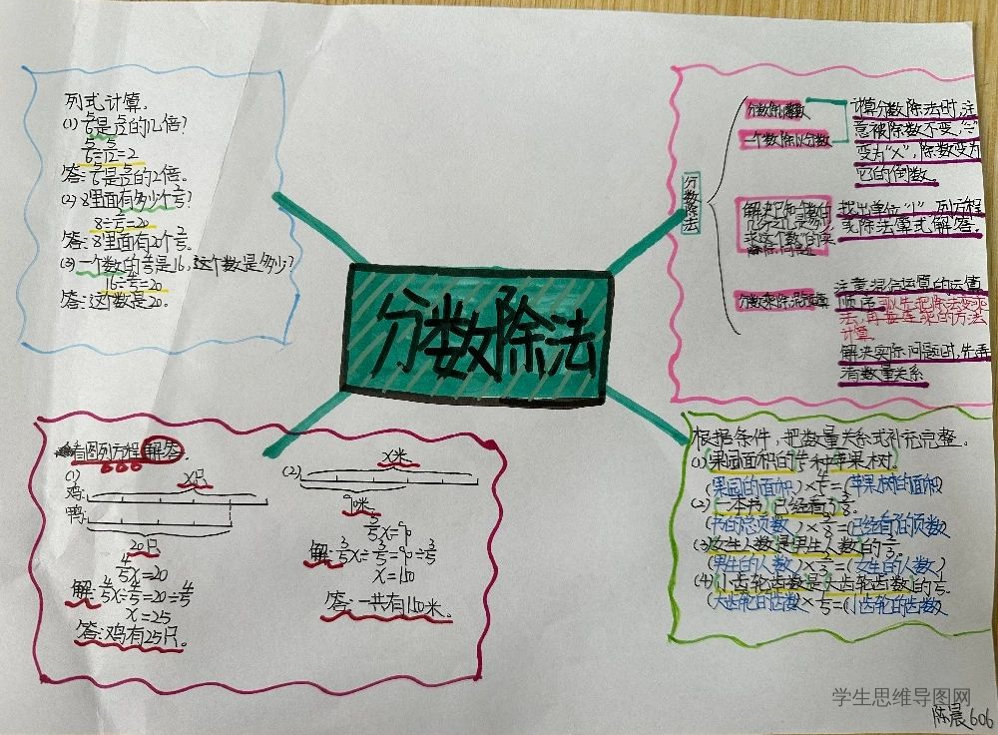 列式计算。
(1) 5/6是5/12的几倍?
5/6÷5/12=2
答:5/6是5/12的2倍。
(2) 8里面有多少个2/5?
8÷2/5=20
答:8里面有20个2/5。
(3) 一个数的4/5是16,这个数是多少?
16÷4/5=20
答:这个数是20。
分数除法
分数除法
分数除以整数
一个数除以分数
计算分数除法时,注
意被除数不变,“÷”
变为“×”,除数变为
它的倒数。
找出单位“1”,列方程
或除法算式解答。
注意混合运算的运算
顺序
法,再按连乘的方法
计算。
解决实际问题时,先弄
清数量关系
看图列方程解答。
(1)
鸡:
x只
鸭:
20只
4/5x=20
解:4/5x÷4/5=20÷4/5
x=25
答:鸡有25只。
(2)
x米
90米
3/5x=90
解:3/5x÷3/5=90÷3/5
x=150
答:一共有150米。
根据条件,把数量关系式补充完整。
(1)果园面积的 种苹果树。
(果园的面积)× =(苹果树的面积)
(2)一本书,已经看了3/8。
(书的总页数)×3/8=(已经看了的页数)
(3)女生人数是男生人数的2/3。
(男生的人数)×2/3=(女生的人数)
(4)小齿轮齿数是大齿轮齿数的
(大齿轮的齿数× =(小齿轮的齿数
学生思维导图网
陈晨606